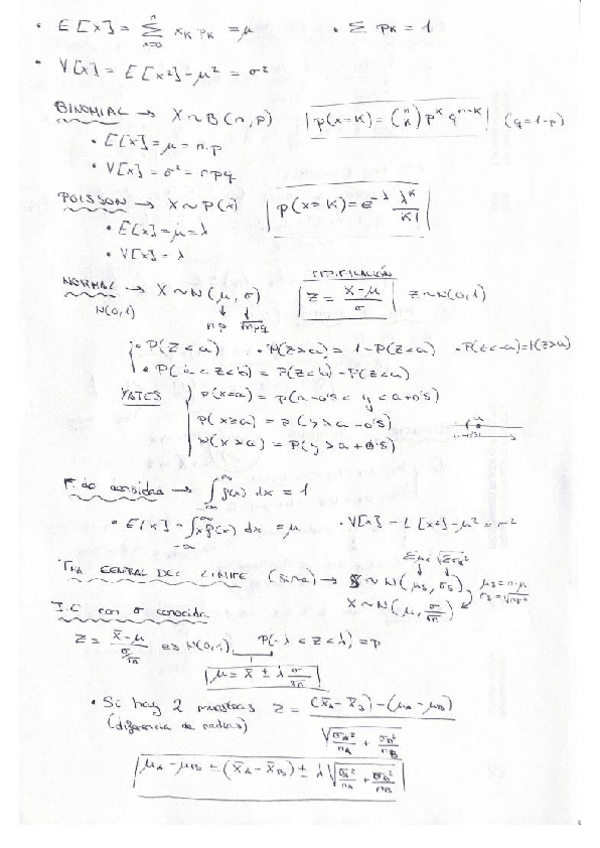 • E[x] = Σ x_k p_k = μ   • Σ p_k = 1
• V[x] = E[x²] - μ² = σ²
BINOMIAL → X ~ B(n, p)   p(x=k) = (n k) p^k q^(n-k)   (q = 1-p)
• E[x] = μ = n.p
• V[x] = σ² = npq
POISSON → X ~ P(λ)   p(x=k) = e^-λ λ^k / k!
• E[x] = μ = λ
• V[x] = λ
TIPIFICACIÓN
NORMAL → X ~ N(μ, σ)   Z = (x-μ)/σ   Z ~ N(0,1)
N(0,1)   np   √npq
• P(Z<a)   • P(Z>a) = 1 - P(Z<a)   • P(Z<-a) = P(Z>a)
• P(a<Z<b) = P(Z<b) - P(Z<a)
YATES   p(x=a) = p(a-0'5 < y < a+0'5)
P(x≥a) = P(y>a-0'5)
P(x>a) = P(y>a+0'5)
→ ∫_-∞^∞ f(x) dx = 1
• E[x] = ∫_-∞^∞ x f(x) dx = μ   • V[x] = E[x²] - μ² = σ²
TMA CENTRAL DEL LÍMITE (suma) → S ~ N(μs, σs)   μs = n·μ
X ~ N(μ, σ/√n)
I.C con σ conocida
Z = (x̄-μ)/(σ/√n) es N(0,1)   P(-λ < Z < λ) = p
μ = x̄ ± λ σ/√n
• Si hay 2 muestras   Z = ((x̄A - x̄B) - (μA - μB)) / √(σA²/nA + σB²/nB)
(diferencia de medias)
μA - μB = (x̄A - x̄B) ± λ √(σA²/nA + σB²/nB)